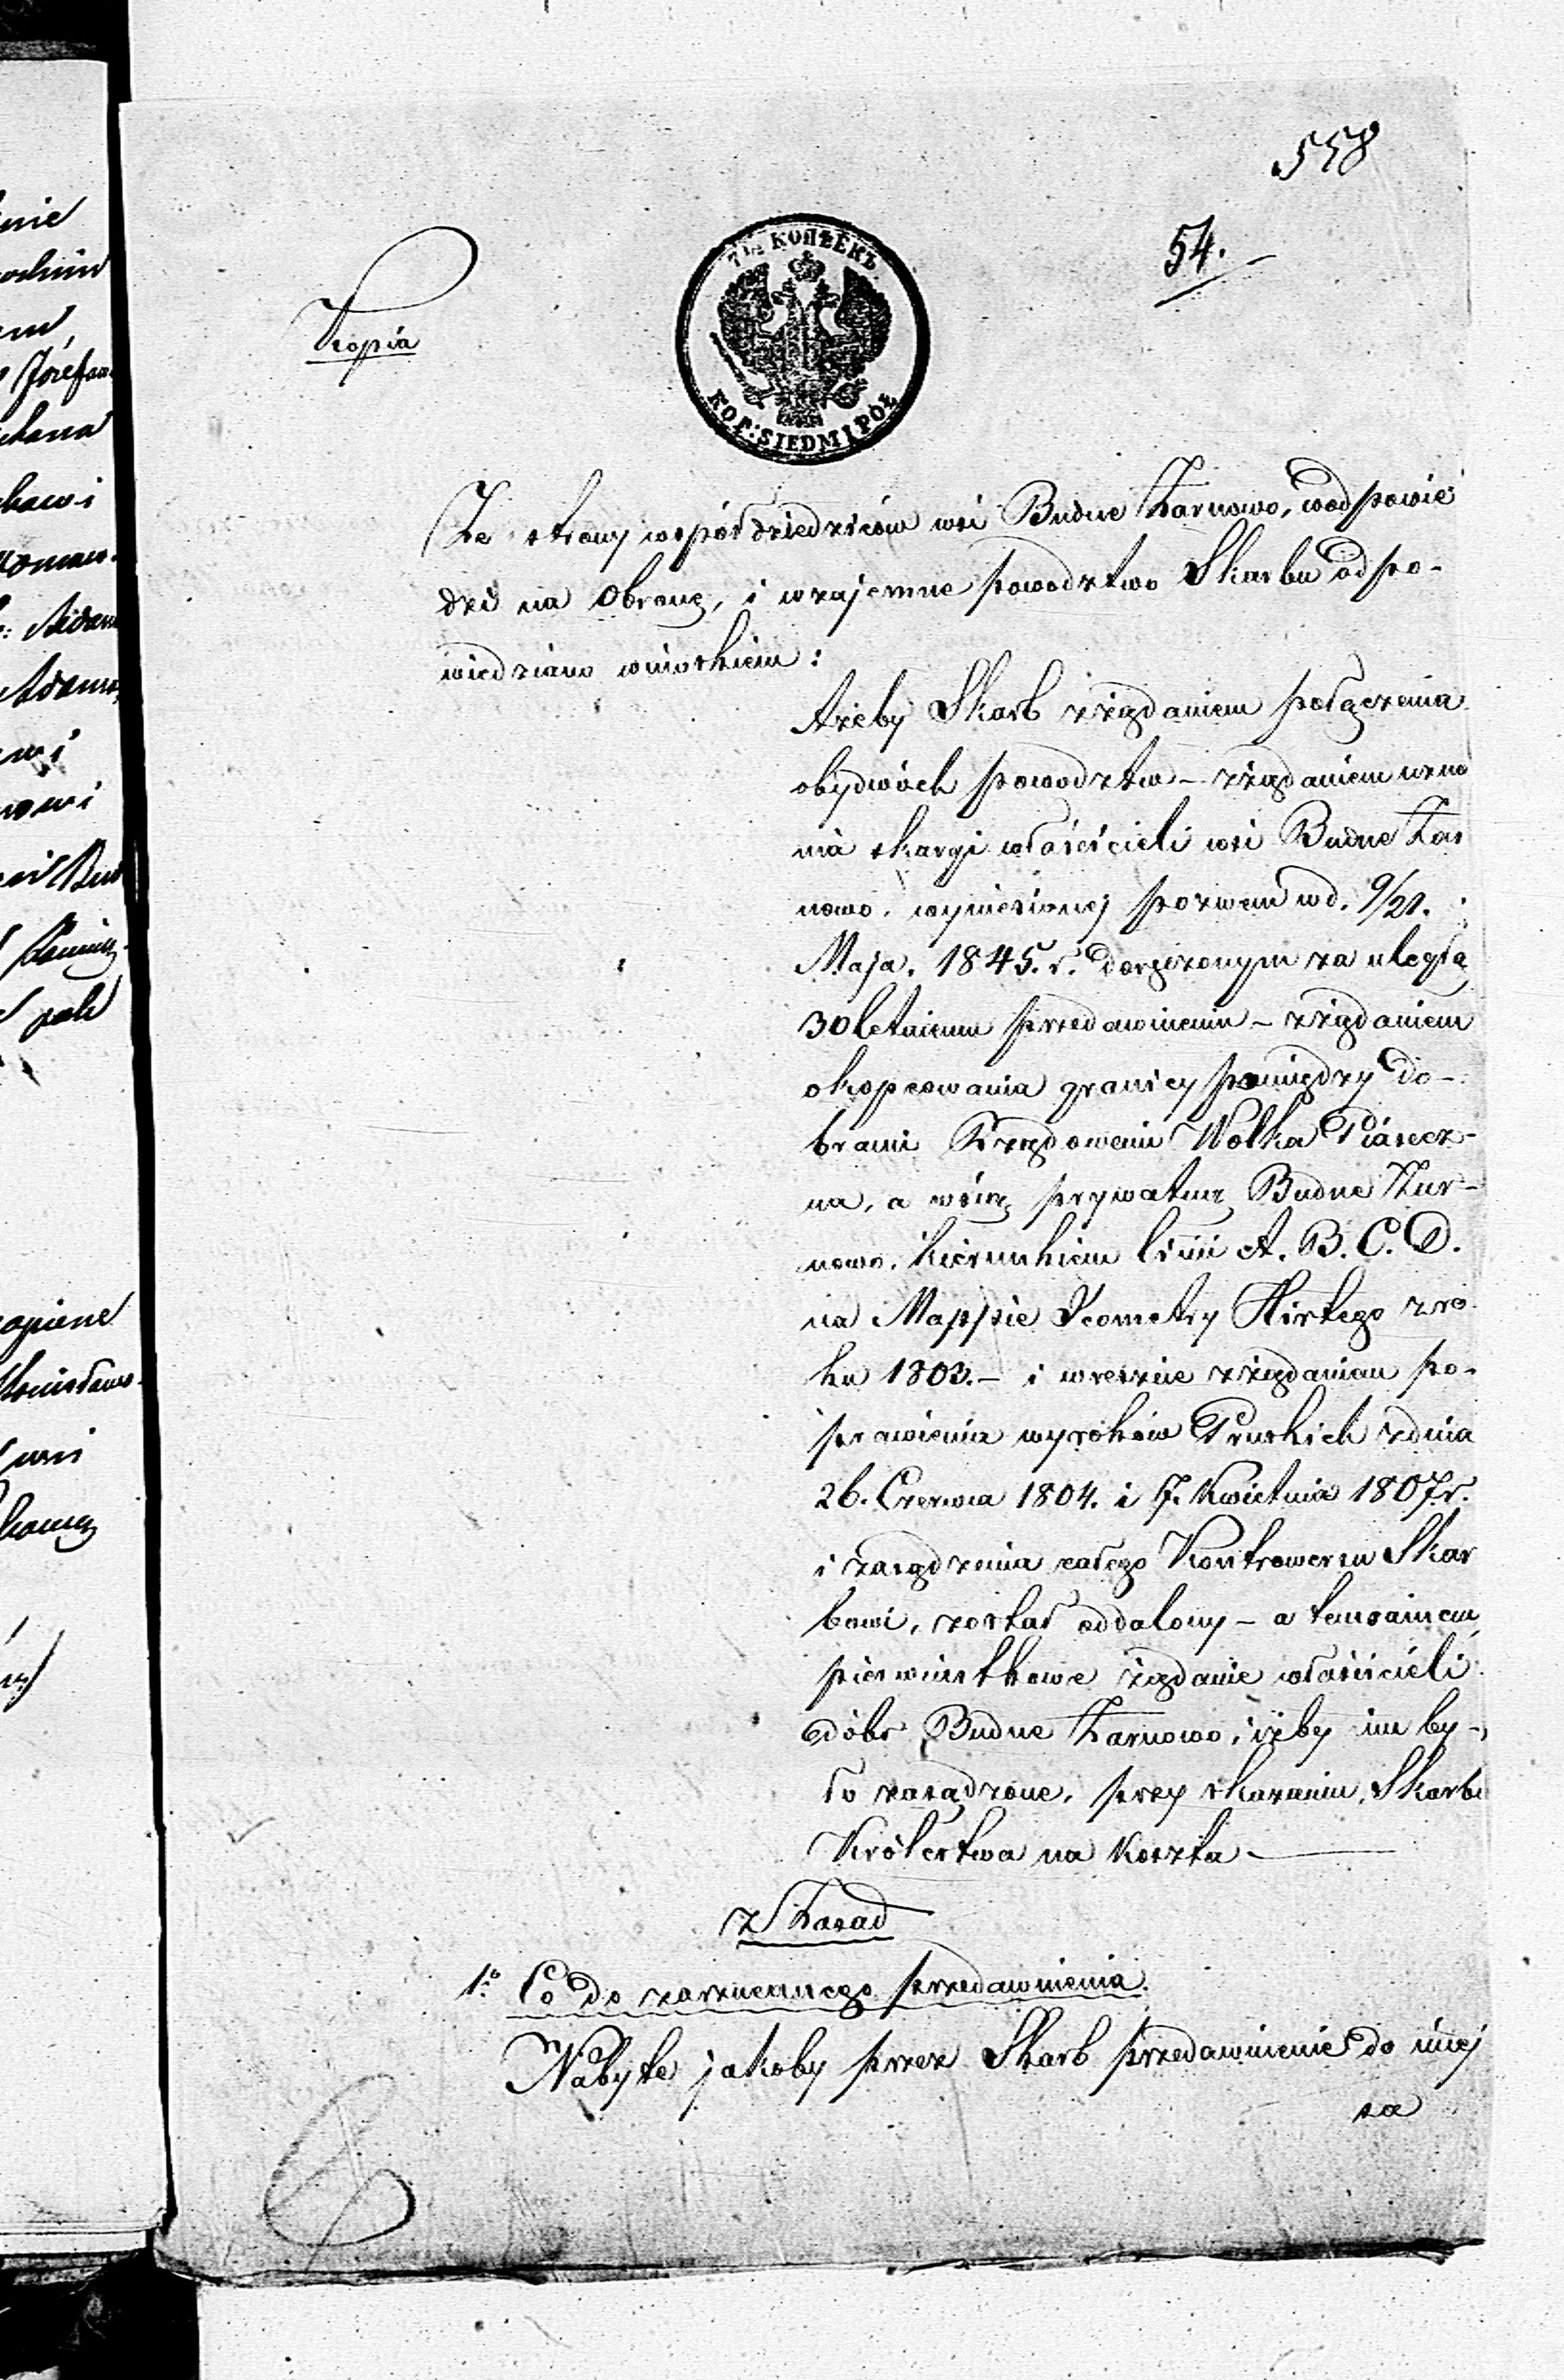 558
54.
7 1/2 КОПѢЕКЪ
KOP: SIEDM I PÓŁ
Kopia
Ze strony współdziedziców wsi Budne Żarnowo, w odpowie
dzi na Obronę, i wzajemne powodztwo Skarbu odpo-
wiedziano wnioskiem:
Ażeby Skarb z żądaniem połączenia
obydwóch powodztw – z żądaniem uzna
nia skargi właścicieli wsi Budne Żar
nowo, wyniesionej pozwem w d. 9/21.
Maja. 1845. r. doręczonym za uległą
30letniemu przedawnieniu – z żądaniem
okopcowania granicy pomiędzy do-
brami Rządowemi Wolka Piasecz-
na, a wsią prywatną Budne Żar-
nowo, kierunkiem linii A. B. C. D.
na Mappie Geometry Hirtego z ro
ku 1803. – i wreszcie z żądaniem po-
prawienia wyroków Pruskich z dnia
26. Czerwca 1804. i 7. Kwietnia 1807. r.
i zasądzenia całego Kontrowersu Skar
bowi, został oddalony – a temsamem
pierwiastkowe żądanie właścicieli
dóbr Budne Żarnowo, iżby im by-
ło zasądzone, przy skazaniu Skarbu
Królestwa na koszta –
z Zasad
1.o Co do zarzuconego przedawnienia.
Nabyte jakoby przez Skarb przedawnienie do niej
sa
nie
Józefa
Adam
Adama
wsi